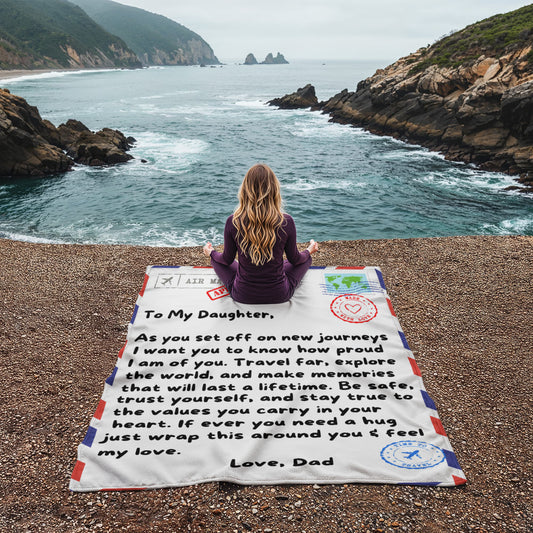 AIR MA
To My Daughter,
As you set off on new journeys
I want you to know how proud
I am of you. Travel far, explore
the world, and make memories
that will last a lifetime. Be safe,
trust yourself, and stay true to
the values you carry in your
heart. If ever you need a hug
just wrap this around you & feel
my love.
Love, Dad